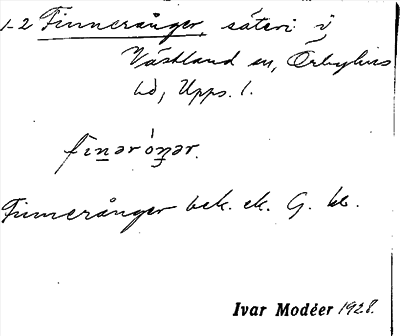 1-2 Finnerånger, säteri i
Västland sn, Örbyhus
hd, Upps. l.
finərónər.
Finnerånger bek. ek. G. kb.
Ivar Modéer 1928.